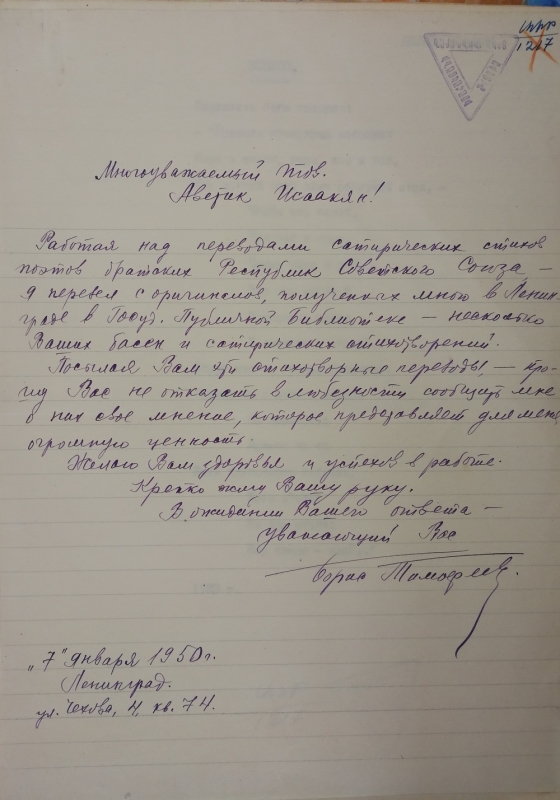 1217
Многоуважаемый тов.
Аветик Исаакян!
Работая над переводами сатирических стихов
поэтов братских Республик Советского Союза —
я перевел с оригиналов, полученных мною в Ленин-
граде в Госуд. Публичной Библиотеке — несколько
Ваших басен и сатирических стихотворений.
Посылая Вам эти стихотворные переводы — про-
шу Вас не отказать в любезности сообщить мне
о них свое мнение, которое представляет для меня
огромную ценность.
Желаю Вам здоровья и успехов в работе.
Крепко жму Вашу руку.
В ожидании Вашего ответа —
уважающий Вас
Борис Тимофеев.
„7" января 1950 г.
Ленинград.
ул. Чехова, 4, кв. 74.